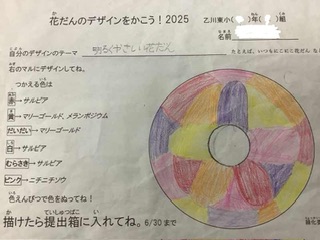 花だんのデザインをかこう！2025
乙川東小( )年( )組
名前
自分のデザインのテーマ 明るくやさしい花だん
右のマルにデザインしてね。
つかえる色は
赤→サルビア
黄→マリーゴールド、メランポジウム
だいだい→マリーゴールド
白→サルビア
むらさき→サルビア
ピンク→ニチニチソウ
色えんぴつで色をぬってね！
描けたら提出箱に入れてね。6/30まで